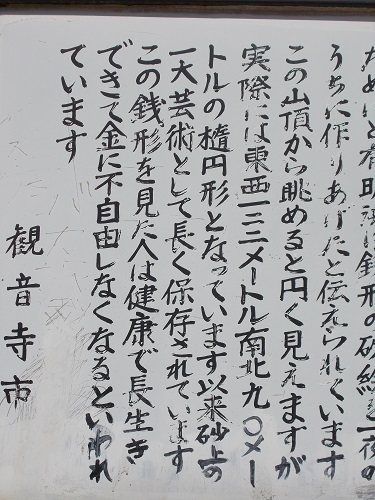 ためにと有明浜に銭形の砂絵を一夜の
うちに作りあげたと伝えられています
この山頂から眺めると円く見えますが
実際には東西一二二メートル南北九〇メー
トルの楕円形となっています以来砂上の
一大芸術として長く保存されています
この銭形を見た人は健康で長生き
できて金に不自由しなくなるといわれ
ています
観音寺市